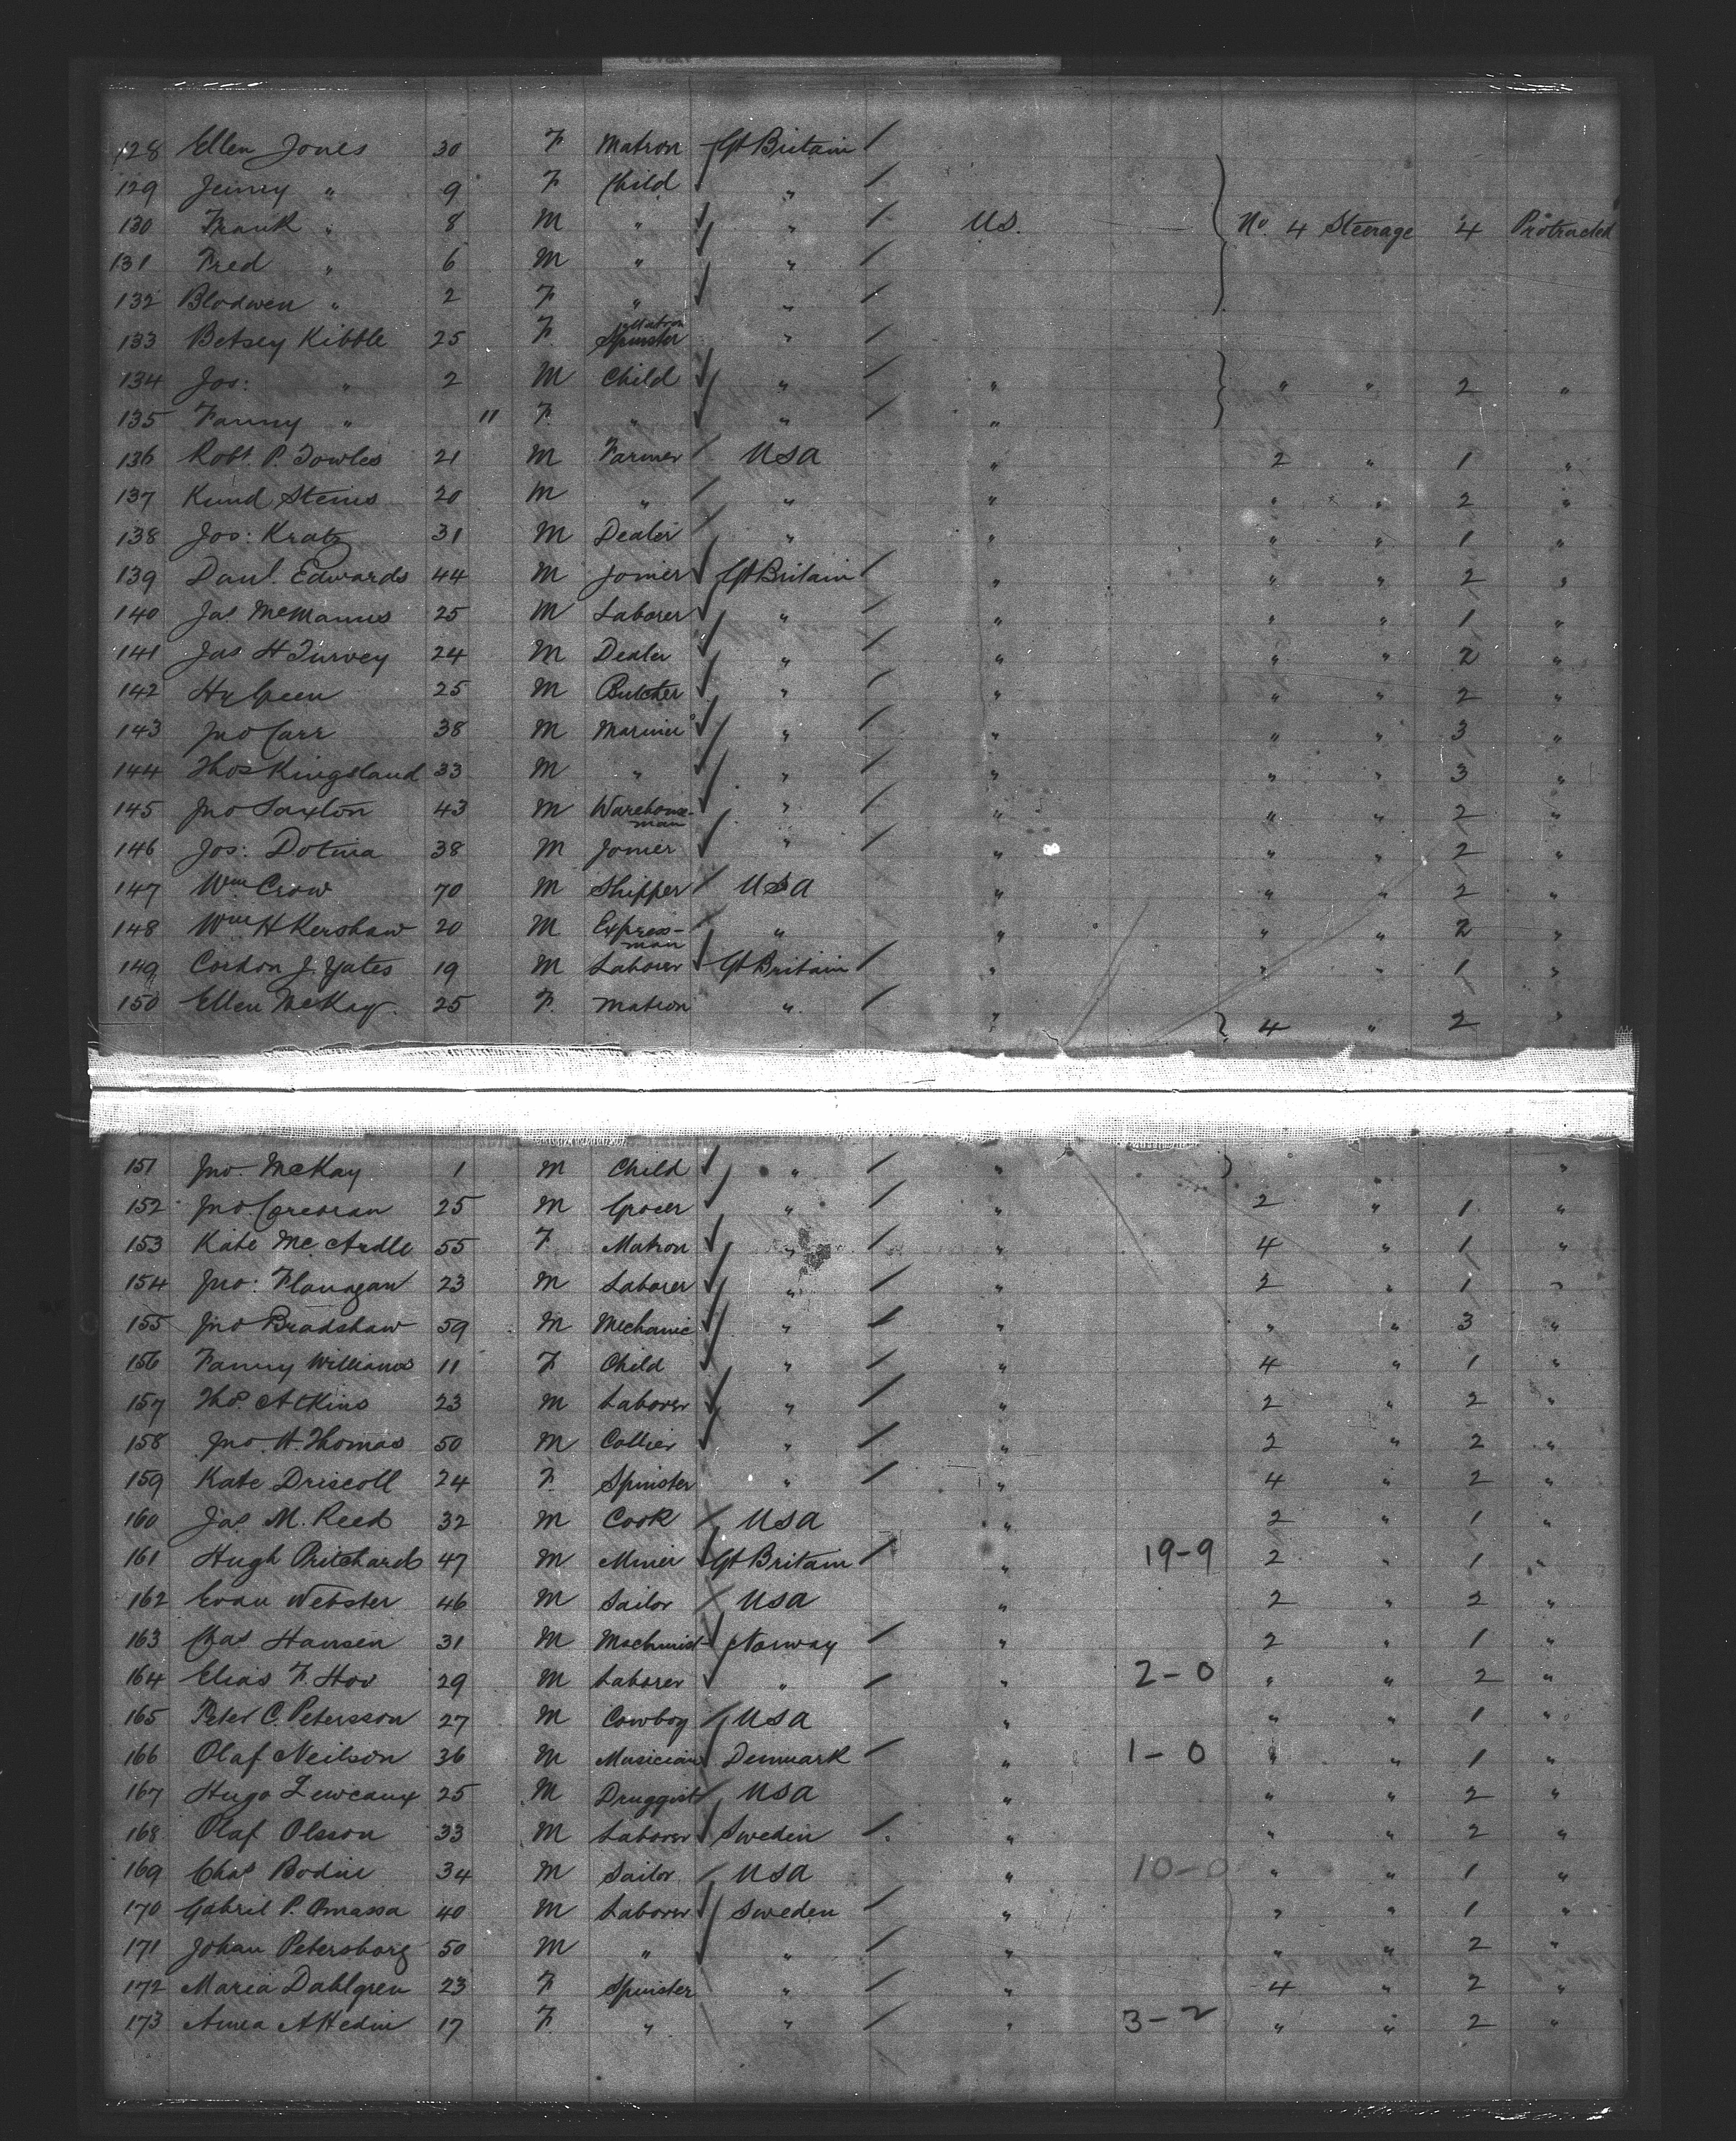 128 Ellen Jones 30 F Matron Gt Britain /
129 Jenny " 9 F Child " /
130 Frank " 8 M " " / U.S. No 4 Steerage 4 Protracted
131 Fred " 6 M " " /
132 Blodwen " 2 F " " /
133 Betsey Kibble 25 F Matron Spinster " /
134 Jos: " 2 M Child " / " " " 2 "
135 Fanny " 11 F " " / "
136 Robt. P. Towles 21 M Farmer / USA " 2 " 1 "
137 Kund Steins 20 M " / " " " " 2 "
138 Jos: Kratz 31 M Dealer / " " " " 1 "
139 Danl. Edwards 44 M Joiner Gt Britain / " " " 2 "
140 Jas McManus 25 M Laborer " / " " " 1 "
141 Jas H Turvey 24 M Dealer " / " " " 2 "
142 Hy Green 25 M Butcher " / " " " 2 "
143 Jno Carr 38 M Mariner " / " " " 3 "
144 Thos Kingsland 33 M " " / " " " 3 "
145 Jno Saxton 43 M Warehouse-man " / " " " 2 "
146 Jos: Dotina 38 M Joiner " / " " " 2 "
147 Wm Crow 70 M Shipper / USA " " " 2 "
148 Wm H Kershaw 20 M Express-man / " " " " 2 "
149 Gordon J. Yates 19 M Laborer Gt Britain / " " " 1 "
150 Ellen McKay 25 F Matron " / " 4 " 2 "
151 Jno. McKay 1 M Child " / " " "
152 Jno. Corcoran 25 M Grocer " / " 2 " 1 "
153 Kate McArdle 55 F Matron " / " 4 " 1 "
154 Jno: Flanagan 23 M Laborer " / " 2 " 1 "
155 Jno Bradshaw 59 M Mechanic " / " " " 3 "
156 Fanny Williams 11 F Child " / " 4 " 1 "
157 Thos. Atkins 23 M Laborer " / " 2 " 2 "
158 Jno. H. Thomas 50 M Collier " / " 2 " 2 "
159 Kate Driscoll 24 F Spinster " / " 4 " 2 "
160 Jas M. Reed 32 M Cook / USA " 2 " 1 "
161 Hugh Pritchard 47 M Miner Gt Britain / " 19-9 2 " 1 "
162 Evan Webster 46 M Sailor / USA " 2 " 2 "
163 Chas Hansen 31 M Machinist Norway / " 2 " 1 "
164 Elias F. Hov 29 M Laborer " / " 2-0 " " 2 "
165 Peter C. Petersson 27 M Cowboy / USA " " " 1 "
166 Olaf Neilson 36 M Musician Denmark / " 1-0 " " 1 "
167 Hugo 25 M Druggist / USA " " " 2 "
168 Olaf Olsson 33 M Laborer Sweden / " " " 2 "
169 Chas Bodin 34 M Sailor / USA " 10-0 " " 1 "
170 Gabril P. Omassa 40 M Laborer Sweden / " " " 1 "
171 Johan Petersborg 50 M " " / " " " 2 "
172 Maria Dahlgren 23 F Spinster " / " 4 " 2 "
173 Anna A Hedin 17 F " " / " 3-2 " " 2 "